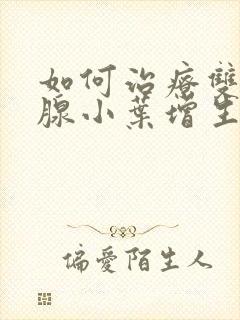 如何治疗雙
腺小葉增生
偏愛陌生人